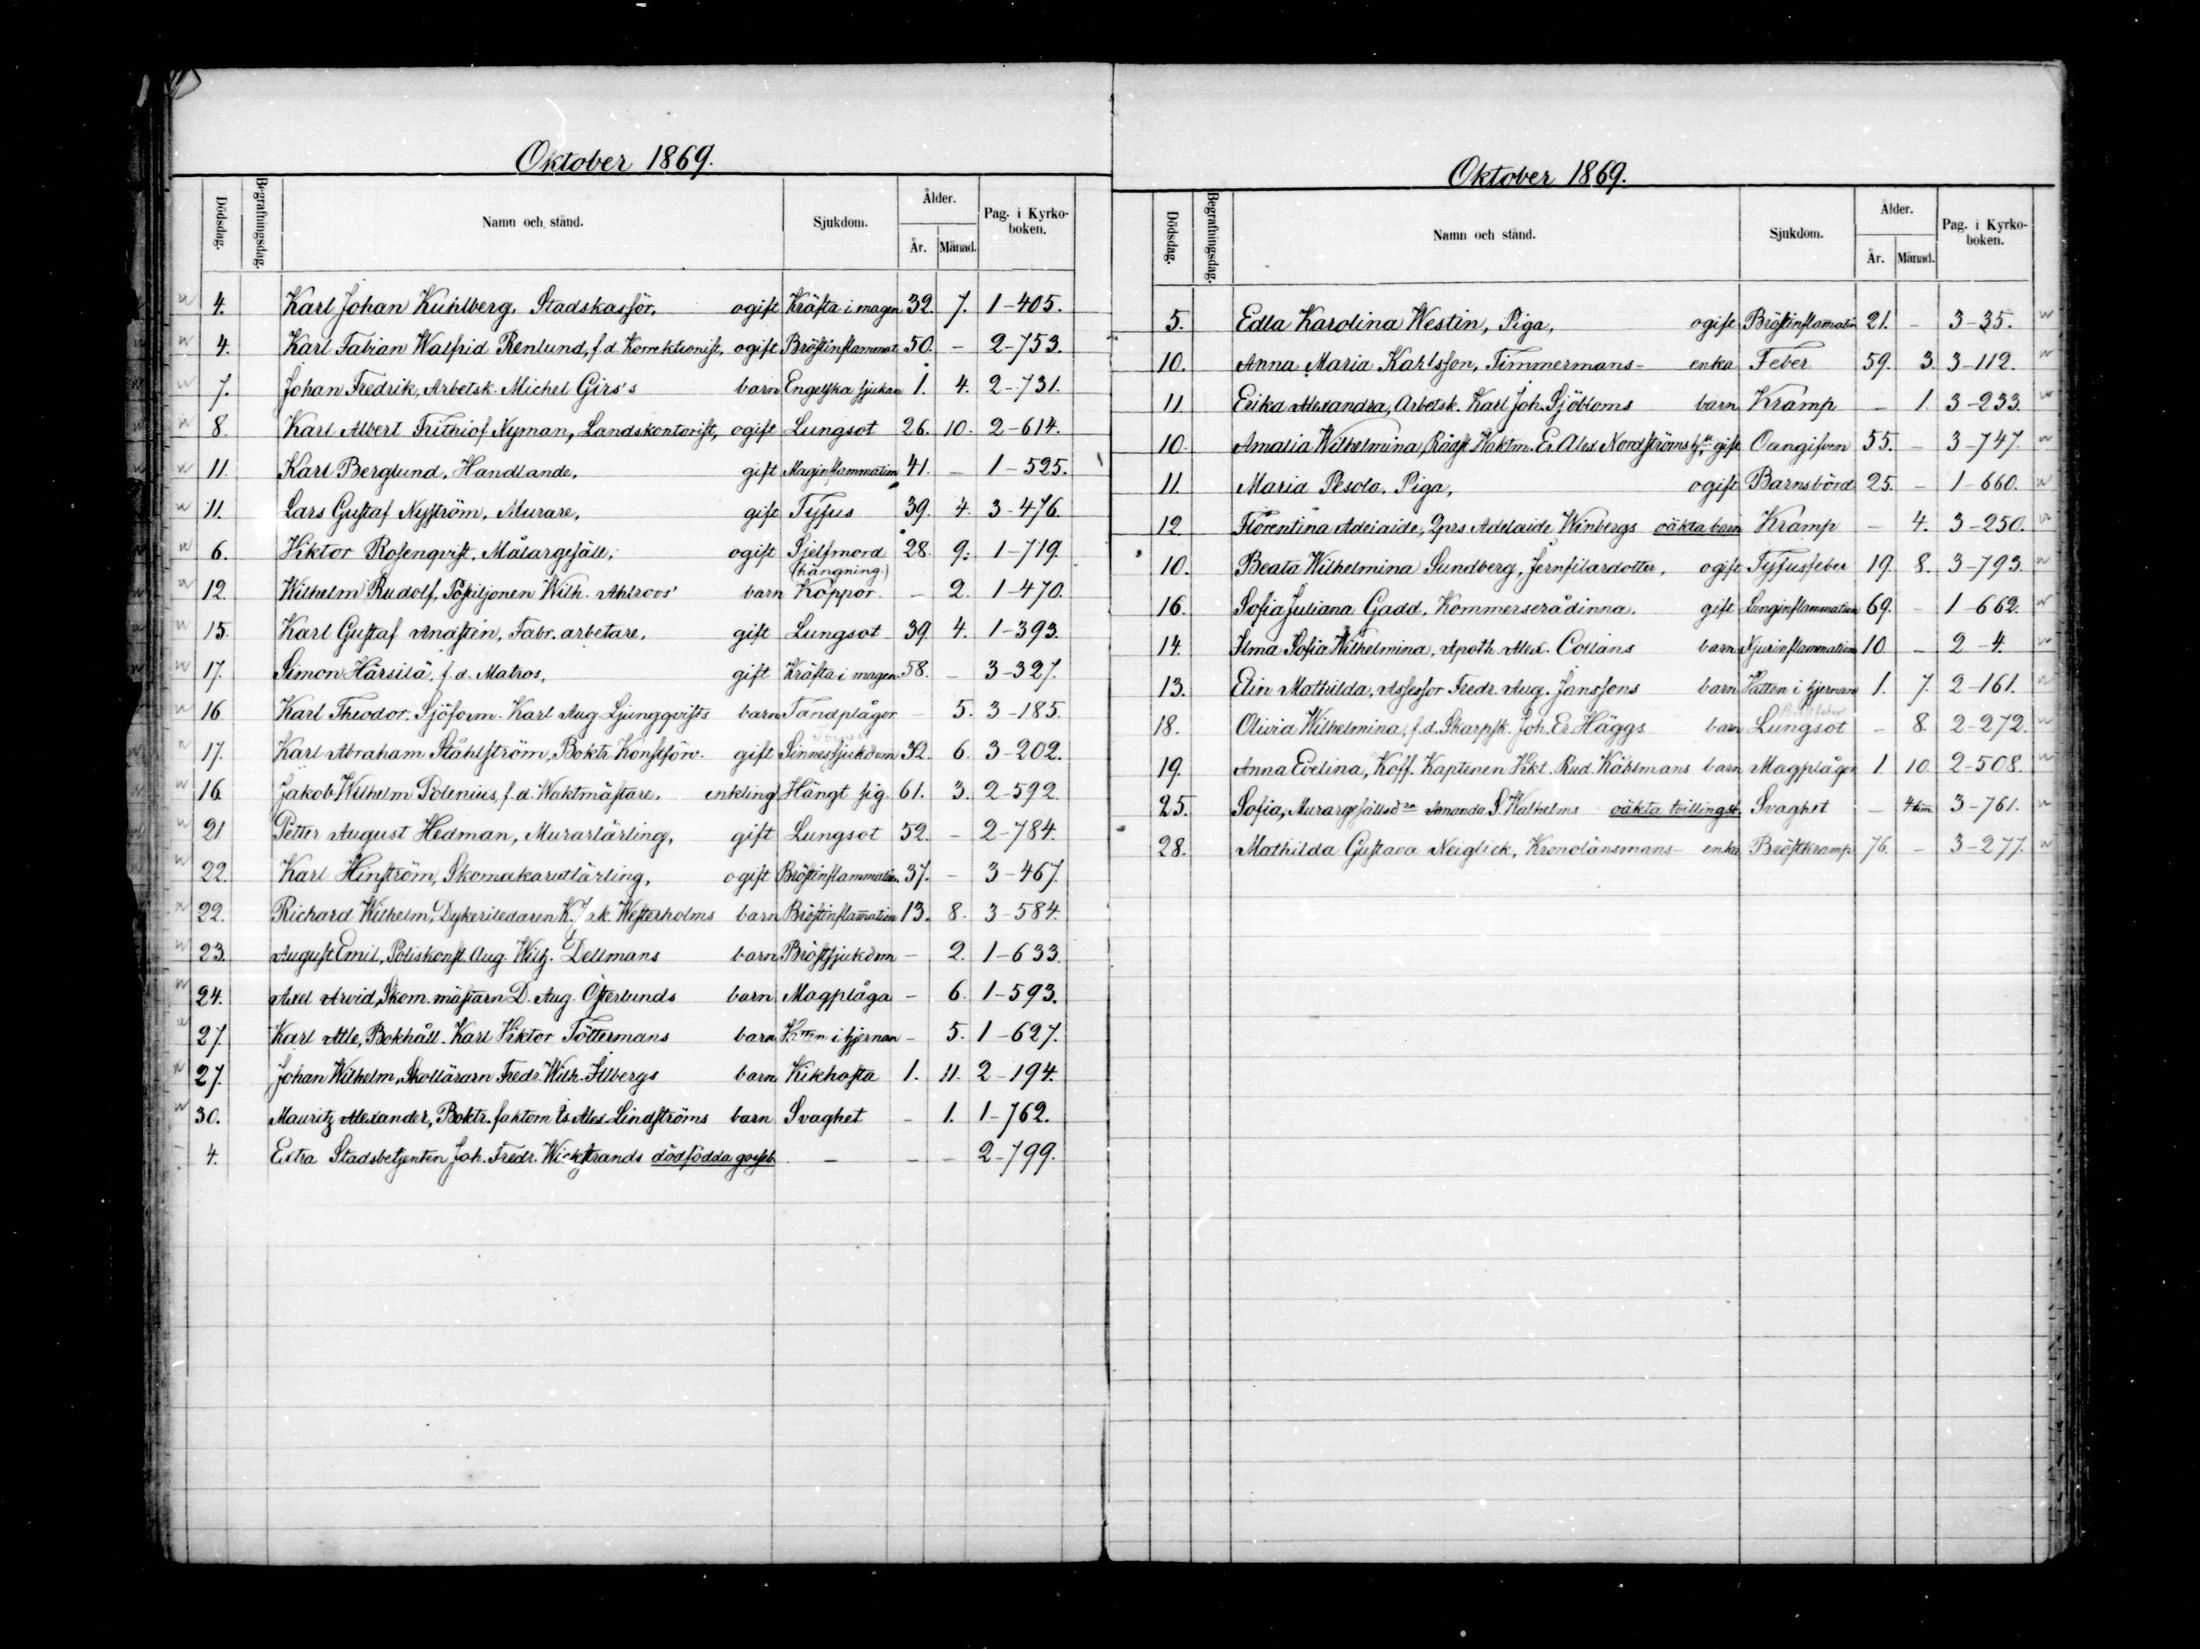 Oktober 1869.
Dödsdag. Begrafningsdag. Namn och stånd. Sjukdom. Ålder. År. Månad. Pag. i Kyrkoboken.
4. Karl Johan Kuhlberg, Stadskassör, ogift Kräfta i magen 32. 7. 1-405.
4. Karl Fabian Walfrid Renlund, f.d. Korrektionist, ogift Bröstinflammat. 50. - 2-753.
7. Johan Fredrik, Arbetsk. Michel Girs's barn Engelska sjukan 1. 4. 2-731.
8. Karl Albert Frithiof Nyman, Landskontorist, ogift Lungsot 26. 10. 2-614.
11. Karl Berglund, Handlande, gift Maginflammation 41. - 1-525.
11. Lars Gustaf Nyström, Murare, gift Tyfus 39. 4. 3-476.
6. Viktor Rosenqvist, Målargesäll, ogift Sjelfmord (hängning.) 28. 9. 1-719.
12. Wilhelm Rudolf, Postiljonen Wilh. Ahlroos' barn Koppor - 2. 1-470.
15. Karl Gustaf Andstén, Fabr. arbetare, gift Lungsot 39. 4. 1-393.
17. Simon Härsilä, f.d. Matros, gift Kräfta i magen 58. - 3-327.
16. Karl Theodor, Sjöform. Karl Aug. Ljungqvists barn Tandplågor - 5. 3-185.
17. Karl Abraham Ståhlström, Boktr. Konstförv. gift Sinnessjukdom 32. 6. 3-202.
16. Jakob Wilhelm Polenius, f.d. Waktmästare, enkling Hängt sig 61. 3. 2-592.
21. Petter August Hedman, Murarlärling, gift Lungsot 52. - 2-784.
22. Karl Hinström, Skomakarelärling, ogift Bröstinflammation 37. - 3-467.
22. Richard Wilhelm, Dykeriledaren K. Jak. Westerholms barn Bröstinflam̄ation 13. 8. 3-584.
23. August Emil, Poliskonst. Aug. Wilh. Dellmans barn Bröstsjukdom - 2. 1-633.
24. Axel Arvid, Skom. mästarn D. Aug. Österlunds barn Magplåga - 6. 1-593.
27. Karl Atle, Bokhåll. Karl Viktor Töttermans barn Vatten i hjernan - 5. 1-627.
27. Johan Wilhelm, Skollärarn Fredr. Wilh. Illbergs barn Kikhosta 1. 11. 2-194.
30. Mauritz Alexander, Boktr. faktorn Is. Alex. Lindströms barn Svaghet - 1. 1-762.
4. Extra Stadsbetjenten Joh. Fredr. Wickstrands dödfödda gosseb. - - - 2-799.
Oktober 1869.
Dödsdag. Begrafningsdag. Namn och stånd. Sjukdom. Ålder. År. Månad. Pag. i Kyrkoboken.
5. Edla Karolina Westin, Piga, ogift Bröstinflamation 21. - 3-35.
10. Anna Maria Kahlsson, Timmermans- enka Feber 59. 3. 3-112.
11. Erika Alexandra, Arbetsk. Karl Joh. Sjöbloms barn Kramp - 1. 3-233.
10. Amalia Wilhelmina, Rådst. Waktm. Er. Alex. Nordströms hu, gift Oangifven 55. - 3-747.
11. Maria Pesola, Piga, ogift Barnsbörd 25. - 1-660.
12. Florentina Adelaide, Qprs Adelaide Winbergs oäkta barn Kramp - 4. 3-250.
10. Beata Wilhelmina Sundberg, Jernfilardotter, ogift Tyfusfeber 19. 8. 3-793.
16. Sofia Juliana Gadd, Kommerserådinna, gift Lunginflammation 69. - 1-662.
14. Ilma Sofia Wilhelmina, Apoth. Alex. Collans barn Njurinflammation 10 - 2-4.
13. Elin Mathilda, Assessor Fredr. Aug. Janssons barn Vatten i hjernan 1. 7. 2-161.
18. Olivia Wilhelmina, f.d. Skarpsk. Joh. Er. Häggs barn Lungsot - 8. 2-272.
19. Anna Evelina, Koff. Kaptenen Vikt. Rud. Kählmans barn Magplågor 1. 10. 2-508.
25. Sofia, Murargesällsd:ra Amanda S. Walhelms oäkta tvillingsb. Svaghet - 4 tim 3-761.
28. Mathilda Gustava Neiglick, Kronolänsmans- enka Bröstkramp 76. - 3-277.